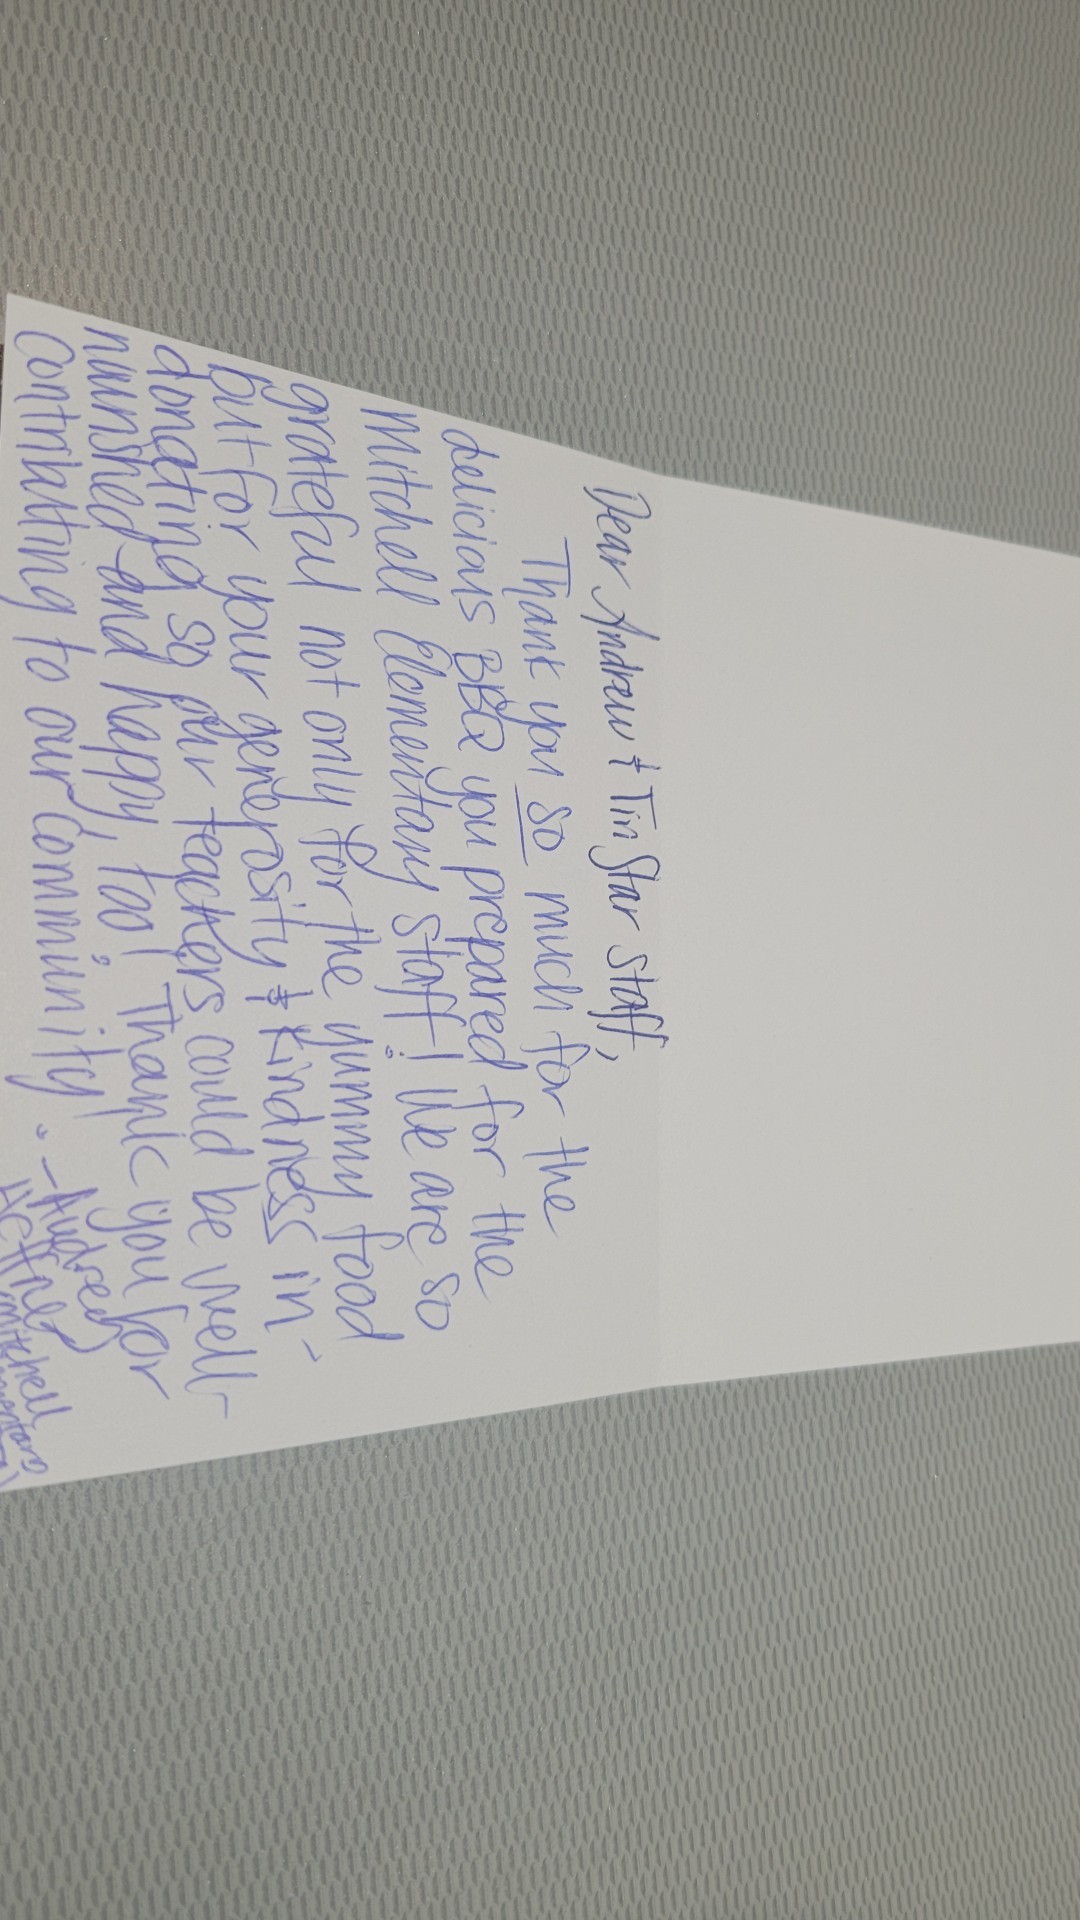 Dear Andrew & Tin Star Staff,
Thank you so much for the
delicious BBQ you prepared for the
Mitchell Elementary Staff! We are so
grateful not only for the yummy food
but for your generosity & kindness in
donating so our teachers could be well-
nourished and happy, too! Thank you for
contributing to our community. - Audrey
Mitchell